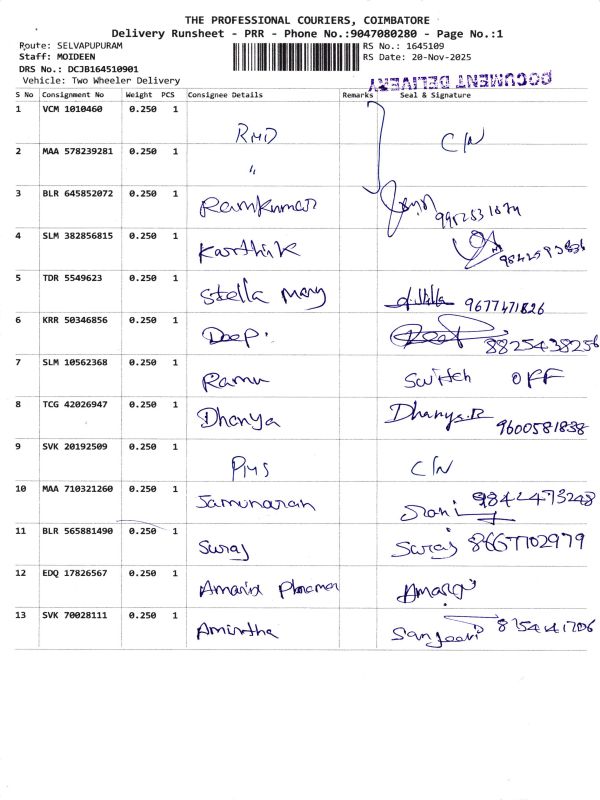 THE PROFESSIONAL COURIERS, COIMBATORE
Delivery Runsheet - PRR - Phone No.:9047080280 - Page No.:1
Route: SELVAPUPURAM RS No.: 1645109
Staff: MOIDEEN RS Date: 20-Nov-2025
DRS No.: DCJB164510901
Vehicle: Two Wheeler Delivery DOCUMENT DELIVERY
S No Consignment No Weight PCS Consignee Details Remarks Seal & Signature
1 VCM 1010460 0.250 1 RMD C/N
2 MAA 578239281 0.250 1 "
3 BLR 645852072 0.250 1 Ramkumar
4 SLM 382856815 0.250 1 Karthik
5 TDR 5549623 0.250 1 Stella Mary 9677471826
6 KRR 50346856 0.250 1 Deep. 8825438256
7 SLM 10562368 0.250 1 Ramu Switch OFF
8 TCG 42026947 0.250 1 Dhanya Dhanya.R 9600581838
9 SVK 20192509 0.250 1 PMS C/N
10 MAA 710321260 0.250 1 9842473248
11 BLR 565881490 0.250 1 Suraj Suraj 8667102979
12 EDQ 17826567 0.250 1
13 SVK 70028111 0.250 1 Amirtha Sanjeevi